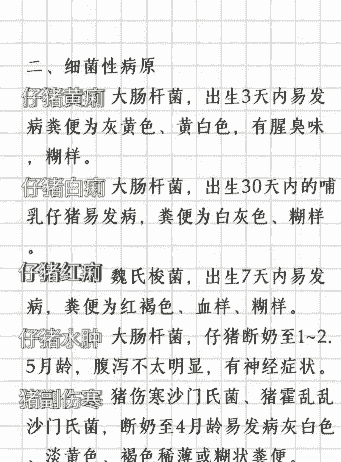 二、细菌性病原
仔猪黄痢 大肠杆菌，出生3天内易发
病粪便为灰黄色、黄白色，有腥臭味
，糊样。
仔猪白痢 大肠杆菌，出生30天内的哺
乳仔猪易发病，粪便为白灰色、糊样
。
仔猪红痢 魏氏梭菌，出生7天内易发
病，粪便为红褐色、血样、糊样。
仔猪水肿 大肠杆菌，仔猪断奶至1~2.
5月龄，腹泻不太明显，有神经症状。
猪副伤寒 猪伤寒沙门氏菌、猪霍乱乱
沙门氏菌，断奶至4月龄易发病灰白色
、淡黄色、褐色稀薄或糊状粪便。